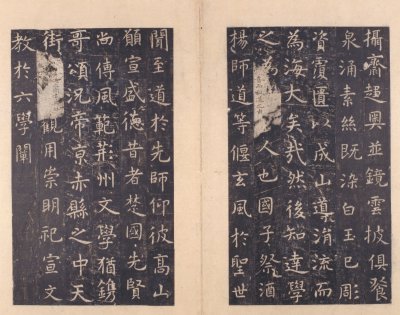 攝齋趍奧並鏡雲披俱餐
泉涌素絲既染白玉已彫
資覆匱成山導涓流而
為海大矣哉然後知達學
之為人也國子祭酒
楊師道等偃玄風於聖世
聞至道於先師仰彼高山
願宣盛德昔者楚國先賢
尚傳風範荊州文學猶鐫
哥頌況帝京赤縣之中天
街觀用崇明祀宣文
教於六學闡